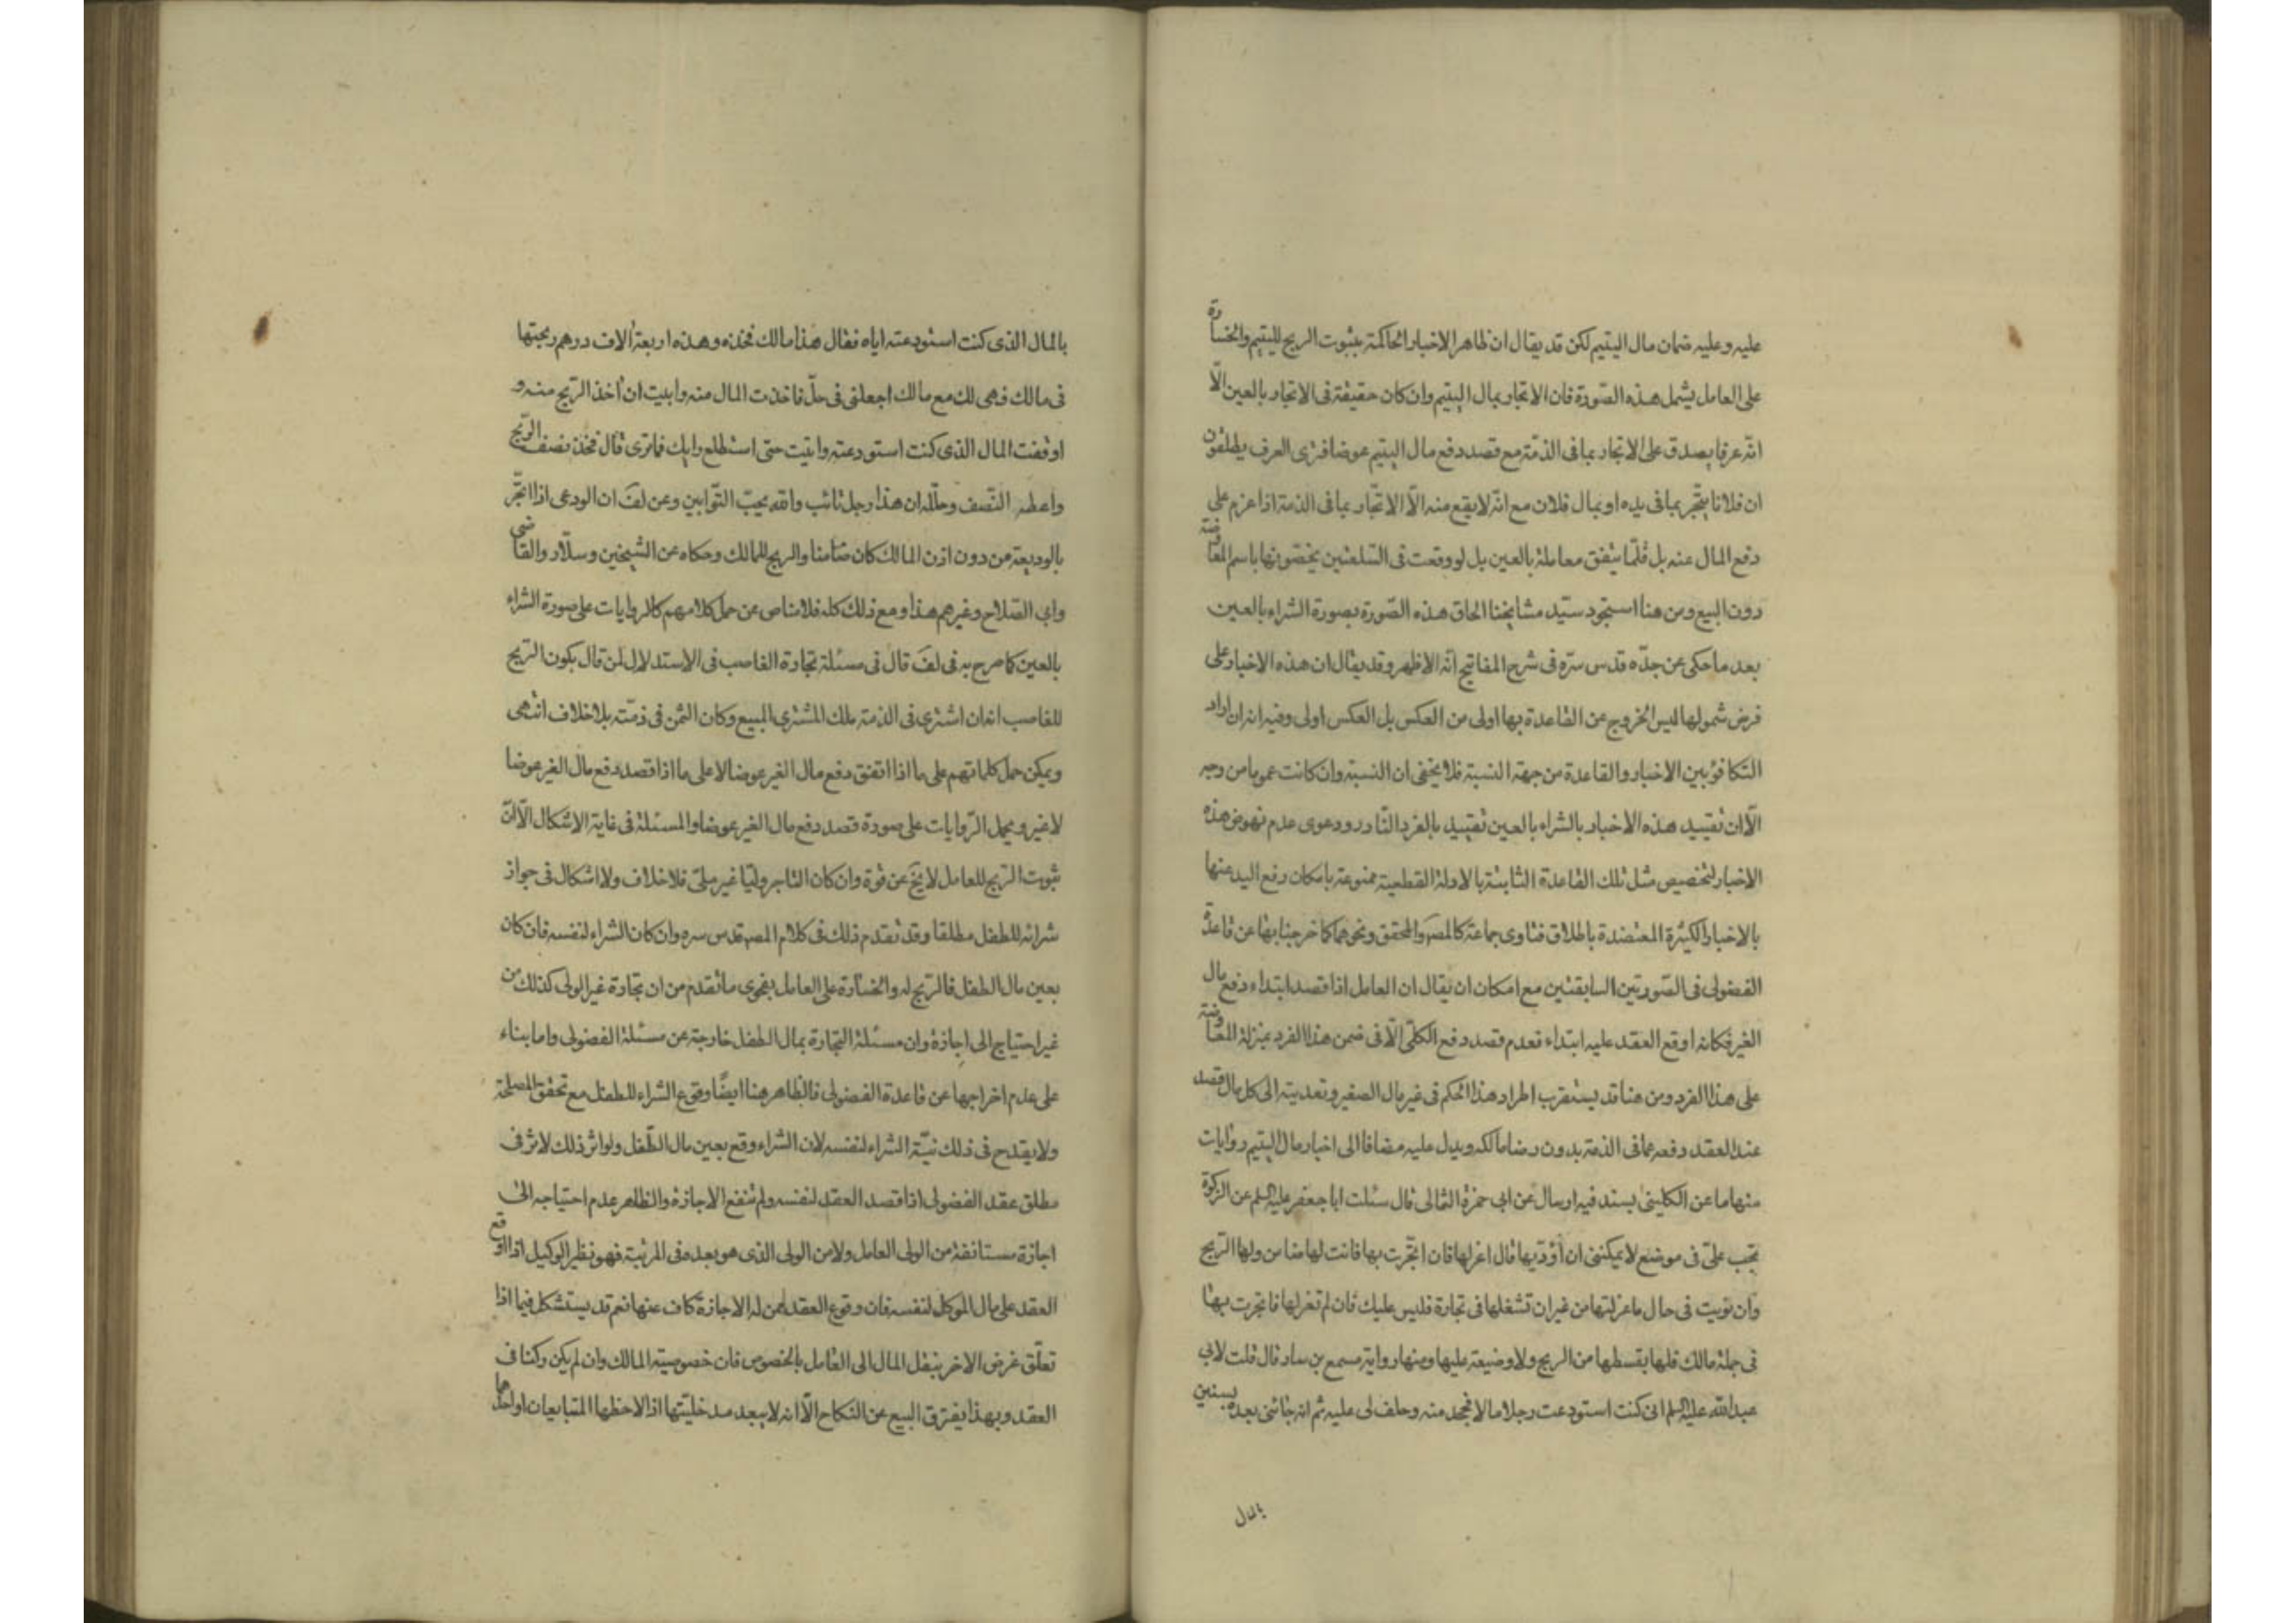 عليه وعليه ضمان مال اليتيم لكن قد يقال ان ظاهر الاخبار الحاكمة بثبوت الربح لليتيم والخسارة
على العامل يشمل هذه الصّورة فان الاتجار بمال اليتيم وان كان حقيقة فى الاتجار بالعين الّا
انّه عرفا يصدق على الاتجار بما فى الذمّة مع قصد دفع مال اليتيم عوضا فترى العرف يطلقون
ان فلانا يتّجر بما فى يده او بمال فلان مع انّه لا يقع منه الّا الاتّجار بما فى الذمة اذا عزم على
دفع المال عنه بل قلّما يتفق معاملة بالعين بل لو وقعت فى السّلعتين يخصّونها باسم المقاوضة
دون البيع ومن هنا استجود سيّد مشايخنا الحاق هذه الصّورة بصورة الشراء بالعين
بعد ما حكى عن جدّه قدس سرّه فى شرح المفاتيح انّه الاظهر وقد يقال ان هذه الاخبار على
فرض شمولها ليس الخروج عن القاعدة بها اولى من العكس بل العكس اولى وفيه انه ان اراد
التكافؤ بين الاخبار والقاعدة من جهة النسبة فلا يخفى ان النسبة وان كانت عموما من وجه
الّا ان تقييد هذه الاخبار بالشراء بالعين تقييد بالفرد النّادر ودعوى عدم نهوض هذه
الاخبار لتخصيص مثل تلك القاعدة الثابتة بالادلة القطعية ممنوعة بامكان رفع اليد عنها
بالاخبار الكثيرة المعتضدة باطلاق فتاوى جماعة كالمصَ والمحقق ونحوهما كما خرجنا بها عن قاعدة
الفضولى فى الصّورتين السابقتين مع امكان ان يقال ان العامل اذا قصد ابتداء دفع مال
الغير فكانه اوقع العقد عليه ابتداء فعدم قصد دفع الكلّى الّا فى ضمن هذا الفرد بمنزلة المعاوضة
على هذا الفرد ومن هنا قد يستقرب اطراد هذا الحكم فى غير مال الصغير وتعديته الى كل مال قصد
عند العقد دفعه عما فى الذمة بدون رضا مالكه ويدل عليه مضافا الى اخبار مال اليتيم روايات
منها ما عن الكلينى بسند فيه ارسال عن ابى حمزة الثمالى قال سئلت ابا جعفر عليه السلم عن الزكوة
تجب علىّ فى موضع لا يمكننى ان أؤدّيها قال اعزلها فان اتّجرت بها فانت لها ضامن ولها الرّبح
وان نويت فى حال ما عزلتها من غير ان تشغلها فى تجارة فليس عليك فان لم تعزلها فاتجرت بها
فى جملة مالك فلها بقسطها من الربح ولا وضيعة عليها ومنها رواية مسمع بن سار قال قلت لابى
عبد الله عليه السلم انى كنت استودعت رجلا مالا فجحد منه وحلف لى عليه ثم انه جائنى بعده بسنين
بالمال
بالمال الذى كنت استودعته اياه فقال هذا مالك فخذه وهذه اربعة الاف درهم ربحتها
فى مالك فهى لك مع مالك اجعلنى فى حلّ فاخذت المال منه وابيت ان آخذ الرّبح منه و
اوقفت المال الذى كنت استودعته واتيت حتى استطلع رايك فما ترى قال فخذ نصف الرّبح
واعطه النّصف وحلّله ان هذا رجل تائب والله يحبّ التّوابين وعن لفَ ان الودعى اذا اتّجر
بالوديعة من دون اذن المالك كان ضامنا والربح للمالك وحكاه عن الشيخين وسلّار والقاضى
وابى الصّلاح وغيرهم هذا ومع ذلك كله فلا مناص عن حمل كلامهم كالروايات على صورة الشراء
بالعين كما صرح به فى لفَ قال فى مسئلة تجارة الغاصب فى الاستدلال لمن قال بكون الربح
للغاصب انه ان اشترى فى الذمة ملك المشترى المبيع وكان الثمن فى ذمّته بلا خلاف انتهى
ويمكن حمل كلماتهم على ما اذا اتفق دفع مال الغير عوضا لا على ما اذا قصد دفع مال الغير عوضا
لا غير ويحمل الرّوايات على صورة قصد دفع مال الغير عوضا والمسئلة فى غاية الاشكال الّا انّ
ثبوت الرّبح للعامل لا يخَ عن قوة وان كان التاجر وليّا غير ملىّ فلا خلاف ولا اشكال فى جواز
شرائه للطفل مطلقا وقد تقدم ذلك فى كلام المصَ قدس سره وان كان الشراء لنفسه فان كان
بعين مال الطفل فالرّبح له والخسارة على العامل بفحوى ما تقدم من ان تجارة غير الولى كذلك من
غير احتياج الى اجازة وان مسئلة التجارة بمال الطفل خارجة عن مسئلة الفضولى واما بناء
على عدم اخراجها عن قاعدة الفضولى فالظاهر هنا ايضًا وقوع الشراء للطفل مع تحقق المصلحة
ولا يقدح فى ذلك نيّة الشراء لنفسه لان الشراء وقع بعين مال الطّفل ولو اثر ذلك لاثر فى
مطلق عقد الفضولى اذا قصد العقد لنفسه ولم تنفع الاجازة والظاهر عدم احتياجه الى
اجازة مستانفة من الولى العامل ولا من الولى الذى هو بعده فى المرتبة فهو نظير الوكيل اذا اوقع
العقد على مال الموكل لنفسه فان وقوع العقد ممن له الاجازة كاف عنها نعم قد يستشكل فيما اذا
تعلّق غرض الاخر بنقل المال الى العامل بالخصوص فان خصوصية المالك وان لم يكن ركنا فى
العقد وبهذا يفترق البيع عن النكاح الّا انه لا يبعد مدخليّتها اذا لاحظها المتبايعان او احدهما